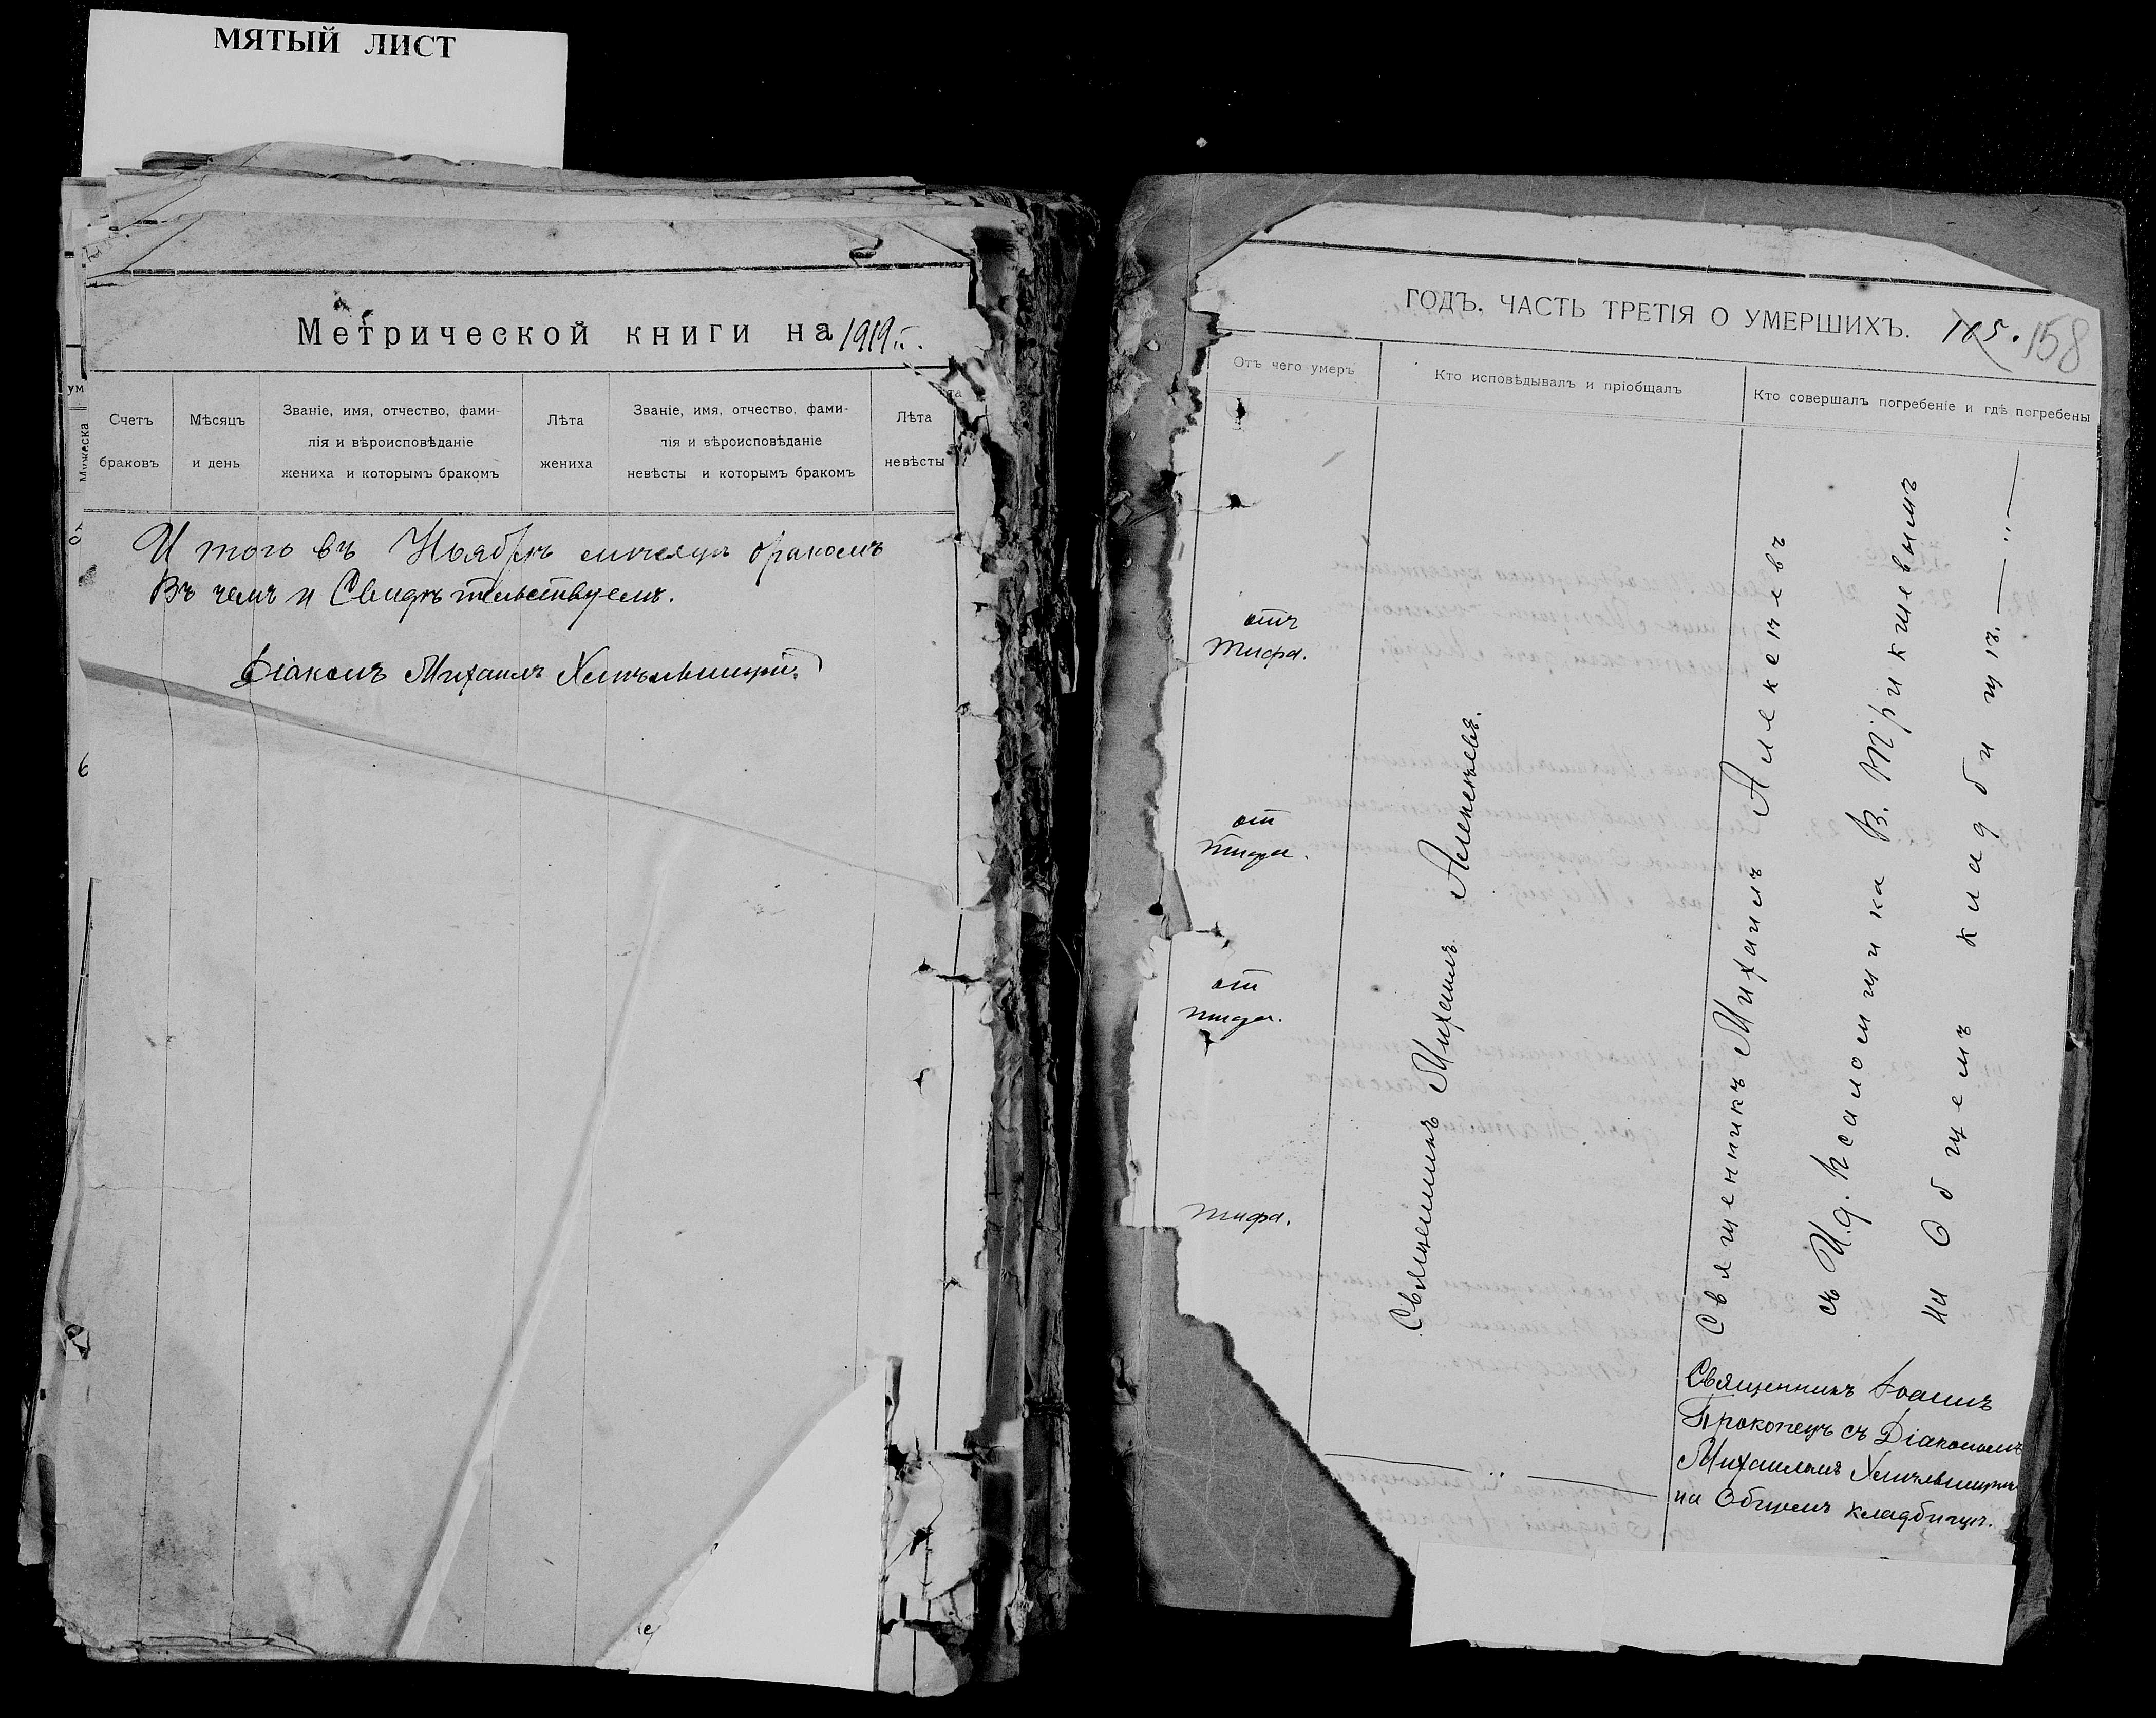 МЯТЫЙ ЛИСТ
Метрической книги на 1919 г.
Счетъ браковъ
Мѣсяцъ и день
Званіе, имя, отчество, фами-
лія и вѣроисповѣданіе
жениха и которымъ бракомъ
Лѣта жениха
Званіе, имя, отчество, фами-
лія и вѣроисповѣданіе
невѣсты и которымъ бракомъ
Лѣта невѣсты
ум
Мужеска
И того въ Ноябрѣ мѣсяцѣ
Въ чемъ и Свидѣтельствуемъ.
Діаконъ Михаилъ
6
ГОДЪ. ЧАСТЬ ТРЕТІЯ О УМЕРШИХЪ. 105. 158
Отъ чего умеръ
Кто исповѣдывалъ и пріобщалъ
Кто совершалъ погребеніе и гдѣ погребены
отъ
тифа.
от
тифа.
от
тифа.
тифа.
Священникъ Михаилъ Алексѣевъ.
Священникъ Михаилъ Алексѣевъ
съ И.д. Псаломщика В. Трикишевымъ
на Общемъ кладбищѣ.
Священникъ Іоаннъ
Прокопецъ съ Діакономъ
Михаиломъ
на Общемъ кладбищѣ.